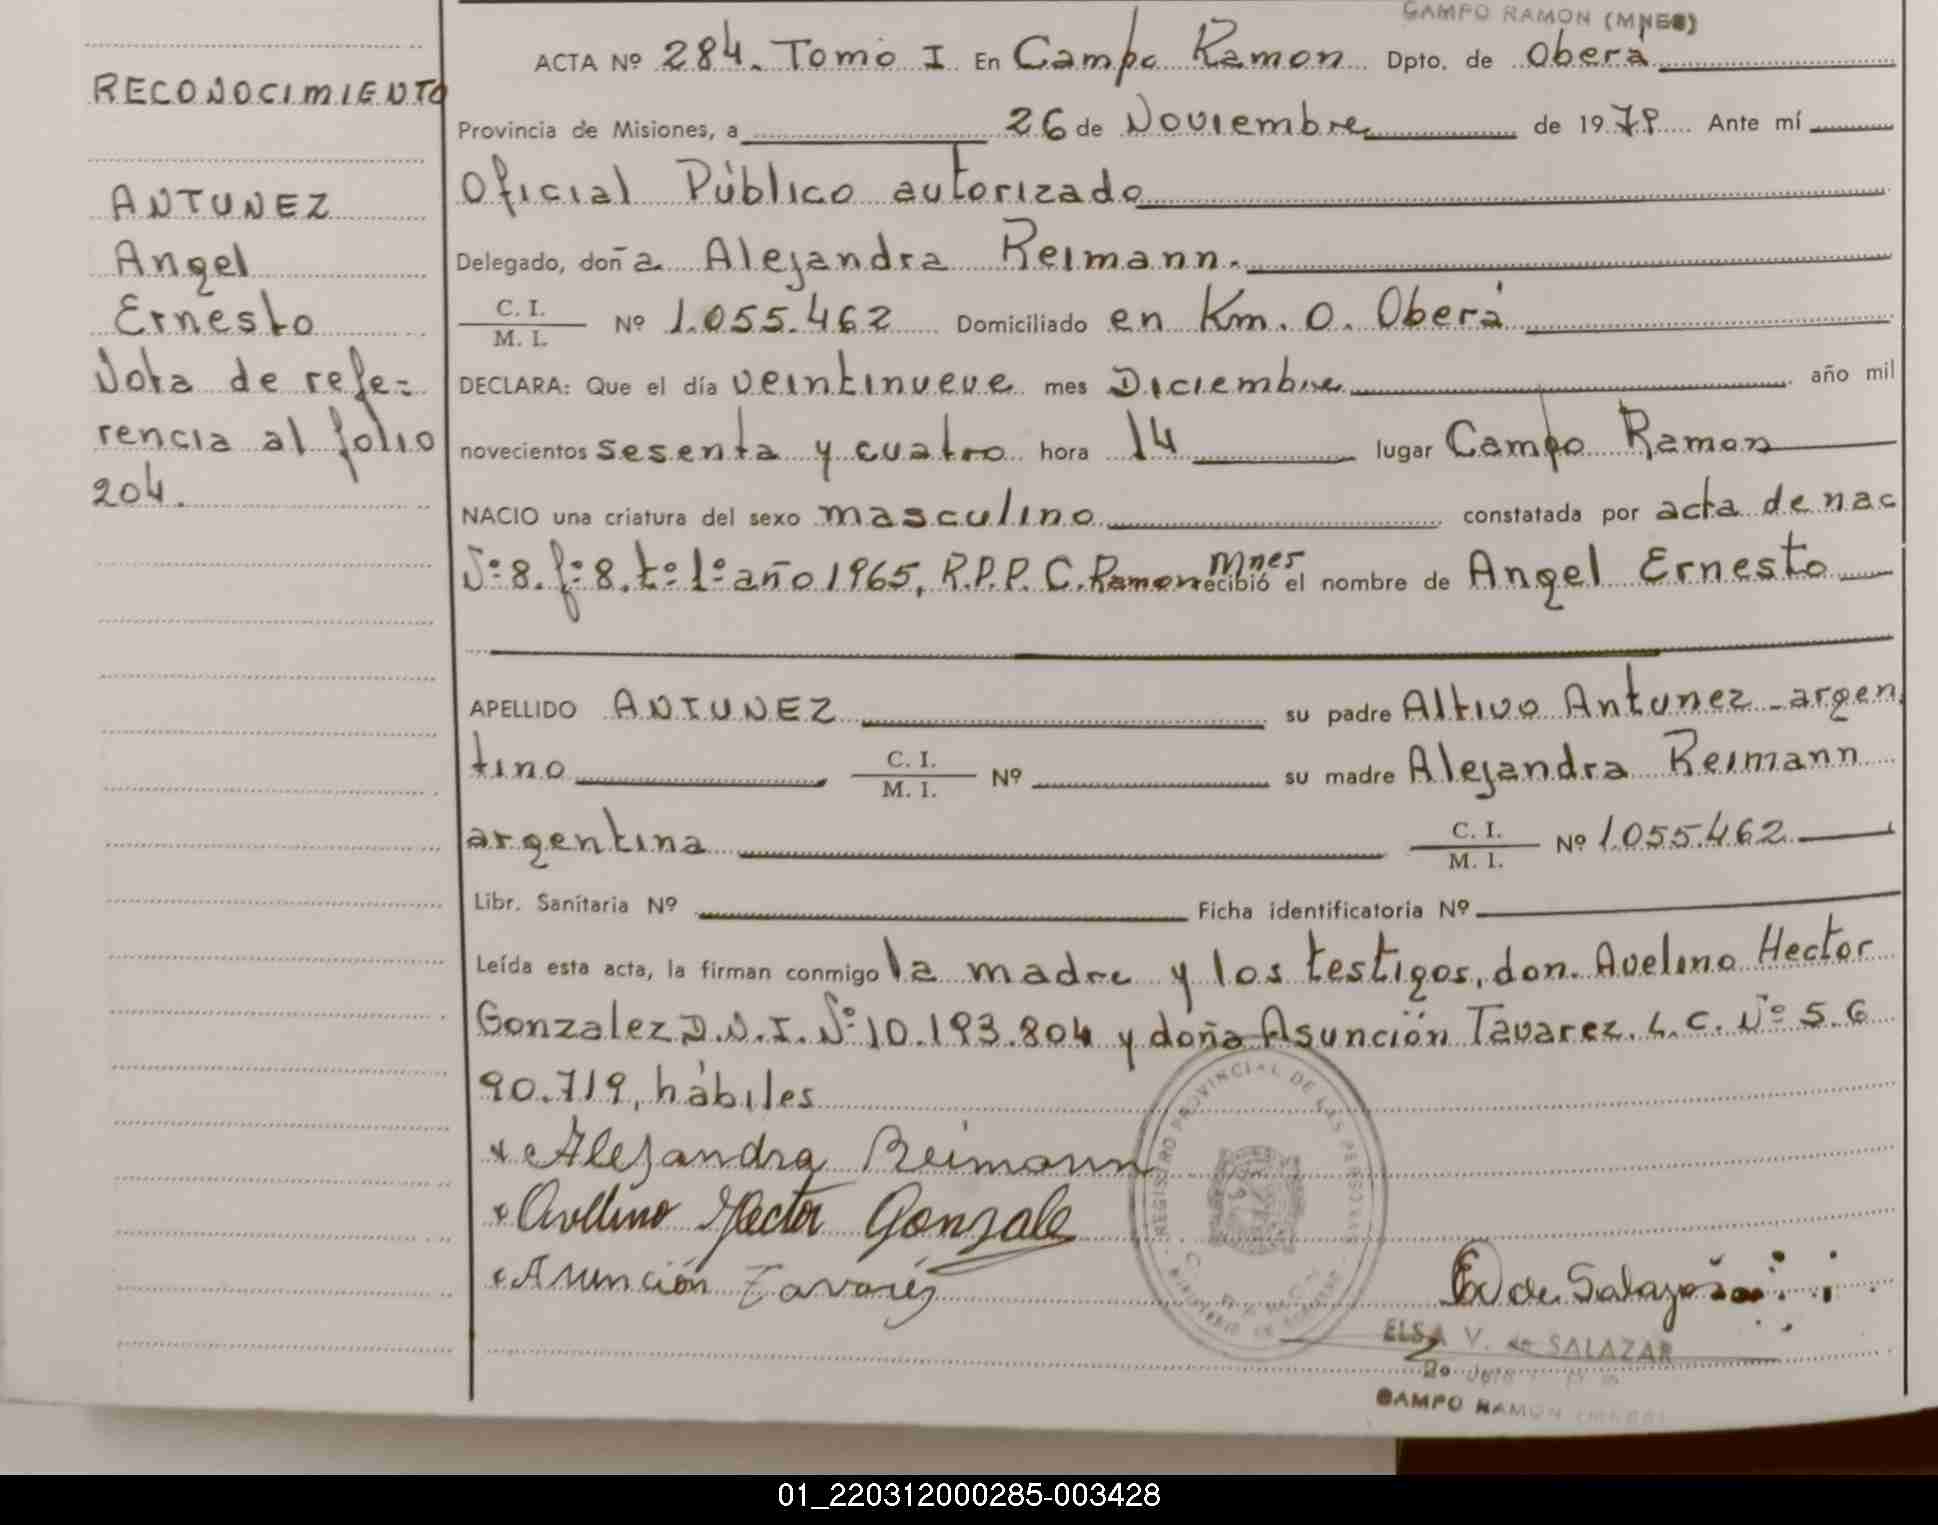 CAMPO RAMON (MNES)
ACTA Nº 284. Tomo I En Campo Ramon Dpto. de Oberá
RECONOCIMIENTO
Provincia de Misiones, a 26 de Noviembre de 1978 Ante mí
Oficial Público autorizado
ANTUNEZ
Angel
Ernesto
Nota de refe=
rencia al folio
204.
Delegado, doña Alejandra Reimann.
C. I.
M. I. Nº 1.055.462 Domiciliado en Km. 0. Oberá
DECLARA: Que el día veintinueve mes Diciembre año mil
novecientos sesenta y cuatro hora 14 lugar Campo Ramon
NACIO una criatura del sexo masculino constatada por acta de nac
Nº 8. fº 8. tº 1º año 1965, R.P.P. C. Ramon Mnes recibió el nombre de Angel Ernesto
APELLIDO ANTUNEZ su padre Altivo Antunez - argen
tino C. I. M. I. Nº su madre Alejandra Reimann
argentina C. I. M. I. Nº 1.055.462
Libr. Sanitaria Nº Ficha identificatoria Nº
Leída esta acta, la firman conmigo la madre y los testigos, don Avelino Hector
Gonzalez D.N.I. Nº 10.193.804 y doña Asunción Tavarez. L.C. Nº 5.6
90.719, hábiles
Alejandra Reimann
Avellino Hector Gonzale
Asunción Tavarés
REGISTRO PROVINCIAL DE LAS PERSONAS
MINISTERIO DE GOBIERNO
EV de Salazar
ELSA V. de SALAZAR
CAMPO RAMON
01_220312000285-003428